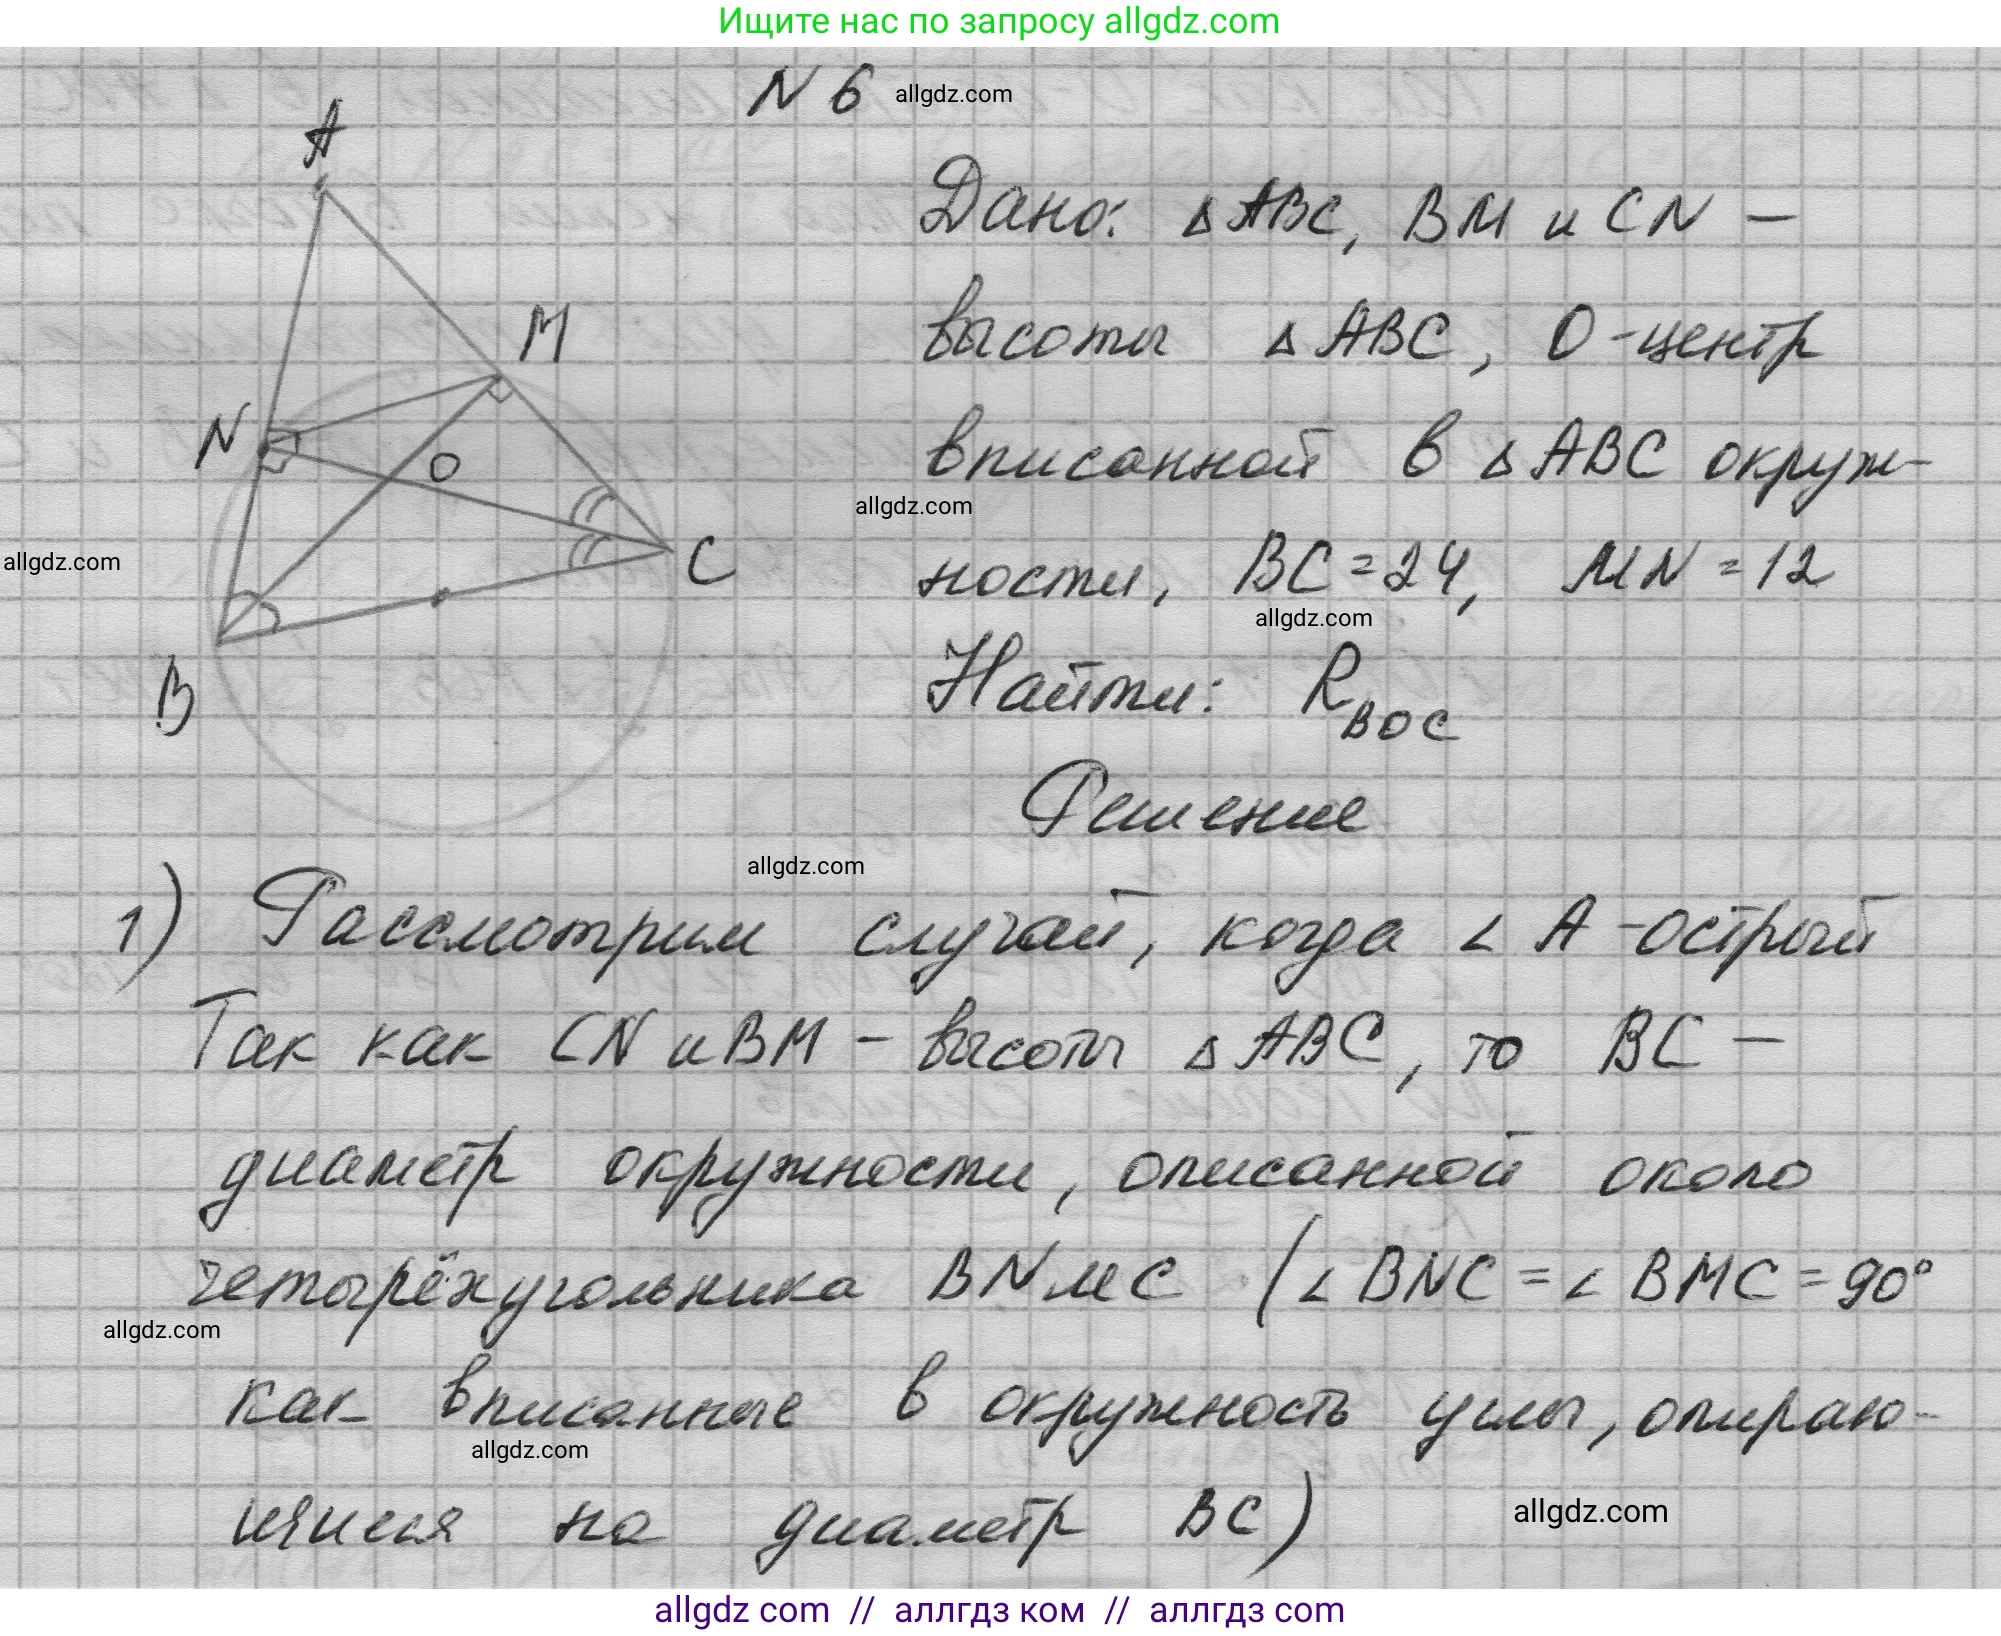 Ищите нас по запросу allgdz.com
N 6 allgdz.com
A
M
N
O
C
B
Дано: △ABC, BM и CN –
высоты △ABC, O-центр
вписанной в △ABC окруж-
allgdz.com
allgdz.com
ности, BC=24, MN=12
allgdz.com
Найти: R BOC
Решение
allgdz.com
1) Рассмотрим случай, когда ∠A-острый
Так как CN и BM – высоты △ABC, то BC –
диаметр окружности, описанной около
четырёхугольника BNMC (∠BNC=∠BMC=90°
allgdz.com
как вписанные в окружность углы, опираю-
allgdz.com
щиеся на диаметр BC)
allgdz.com
allgdz com // аллгдз ком // аллгдз com